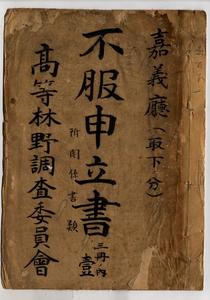 嘉義廳(取下ノ分)
不服申立書
附関係書類
三冊ノ內
壹
高等林野調查委員會